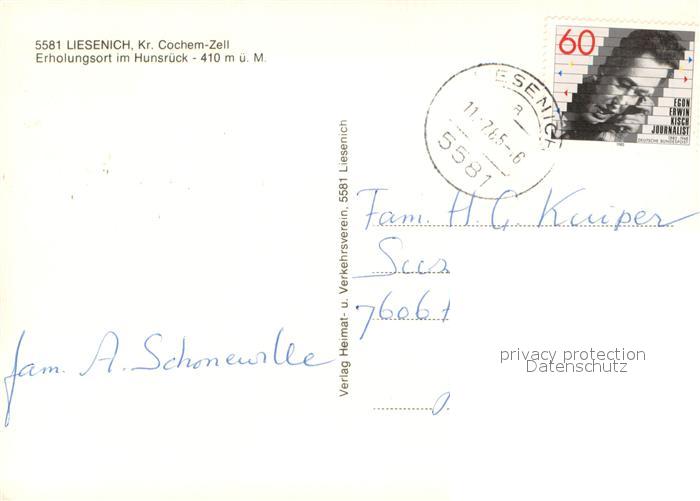 5581 LIESENICH, Kr. Cochem-Zell
Erholungsort im Hunsrück - 410 m ü. M.
60
EGON
ERWIN
KISCH
JOURNALIST
1885-1948
DEUTSCHE BUNDESPOST
1985
LIESENICH
a
5581
Verlag Heimat- u. Verkehrsverein, 5581 Liesenich
Fam. H. G. Kuiper
7606
fam. A. Schonewille
privacy protection
Datenschutz